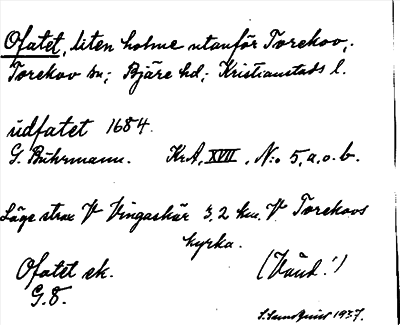 Ofatet, liten holme utanför Torekov,
Torekov sn; Bjäre hd; Kristianstads l.
üdfatet 1684.
G. Buhrmann. KrA, XVII, N:o 5, a.o.b.
Läge strax V Vingaskär 3,2 km. V Torekovs
kyrka.
Ofatet ek. (Vänd!)
G.8.
1937.